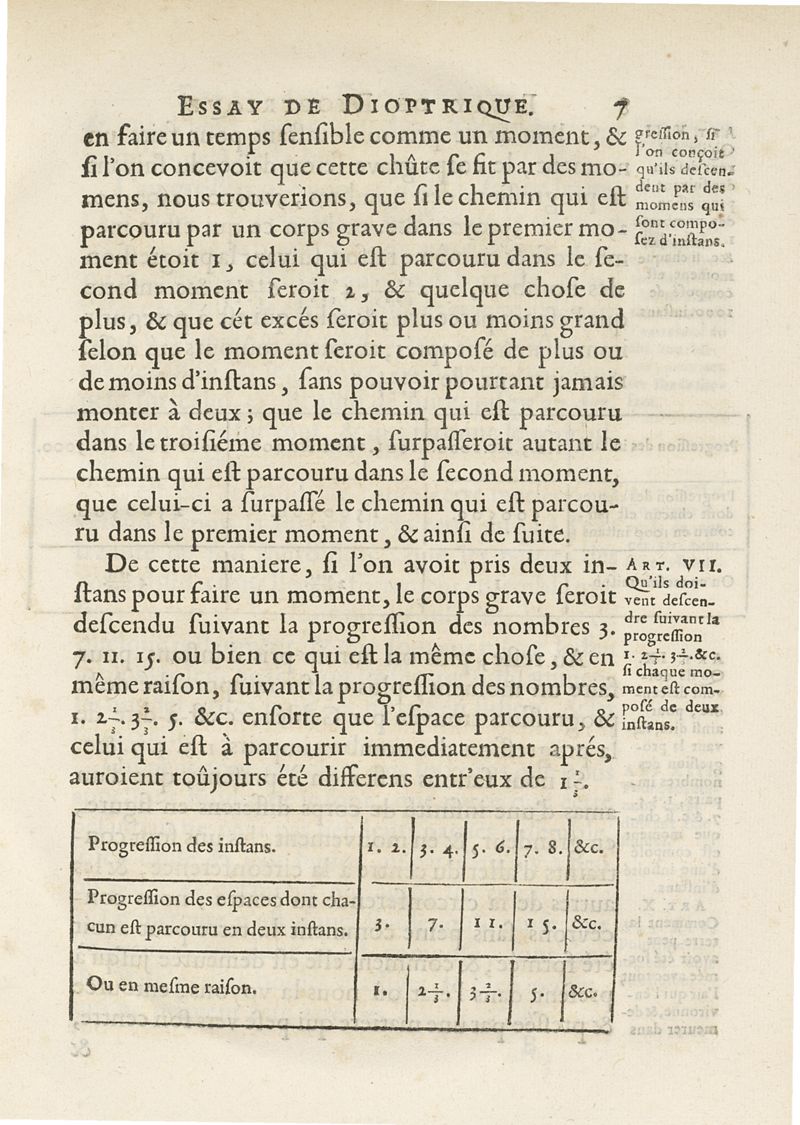 ESSAY DE DIOPTRIQUE. 7
en faire un temps ſenſible comme un moment, &
ſi l'on concevoit que cette chûte ſe fit par des mo-
mens, nous trouverions, que ſi le chemin qui eſt
parcouru par un corps grave dans le premier mo-
ment étoit 1, celui qui eſt parcouru dans le ſe-
cond moment ſeroit 2, & quelque choſe de
plus, & que cét excés ſeroit plus ou moins grand
ſelon que le moment ſeroit compoſé de plus ou
de moins d'inſtans, ſans pouvoir pourtant jamais
monter à deux; que le chemin qui eſt parcouru
dans le troiſiéme moment, ſurpaſſeroit autant le
chemin qui eſt parcouru dans le ſecond moment,
que celui-ci a ſurpaſſé le chemin qui eſt parcou-
ru dans le premier moment, & ainſi de ſuite.
greſſion, ſi
l'on conçoit
qu'ils deſcen-
dent par des
momens qui
ſont compo-
ſez d'inſtans.
De cette maniere, ſi l'on avoit pris deux in-
ſtans pour faire un moment, le corps grave ſeroit
deſcendu ſuivant la progreſſion des nombres 3.
7. 11. 15. ou bien ce qui eſt la même choſe, & en
même raiſon, ſuivant la progreſſion des nombres,
1. 2 1/3. 3 2/3. 5. &c. enſorte que l'eſpace parcouru, &
celui qui eſt à parcourir immediatement aprés,
auroient toûjours été differens entr'eux de 1 1/3.
ART. VII.
Qu'ils doi-
vent deſcen-
dre ſuivant la
progreſſion
1. 2 1/3. 3 2/3. &c.
ſi chaque mo-
ment eſt com-
poſé de deux
inſtans.
Progreſſion des inſtans. 1. 2. 3. 4. 5. 6. 7. 8. &c.
Progreſſion des eſpaces dont cha-
cun eſt parcouru en deux inſtans. 3. 7. 11. 15. &c.
Ou en meſme raiſon. 1. 2 1/3. 3 2/3. 5. &c.